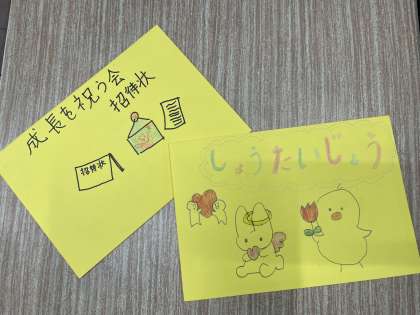 成長を祝う会
招待状
招待状
しょうたいじょう